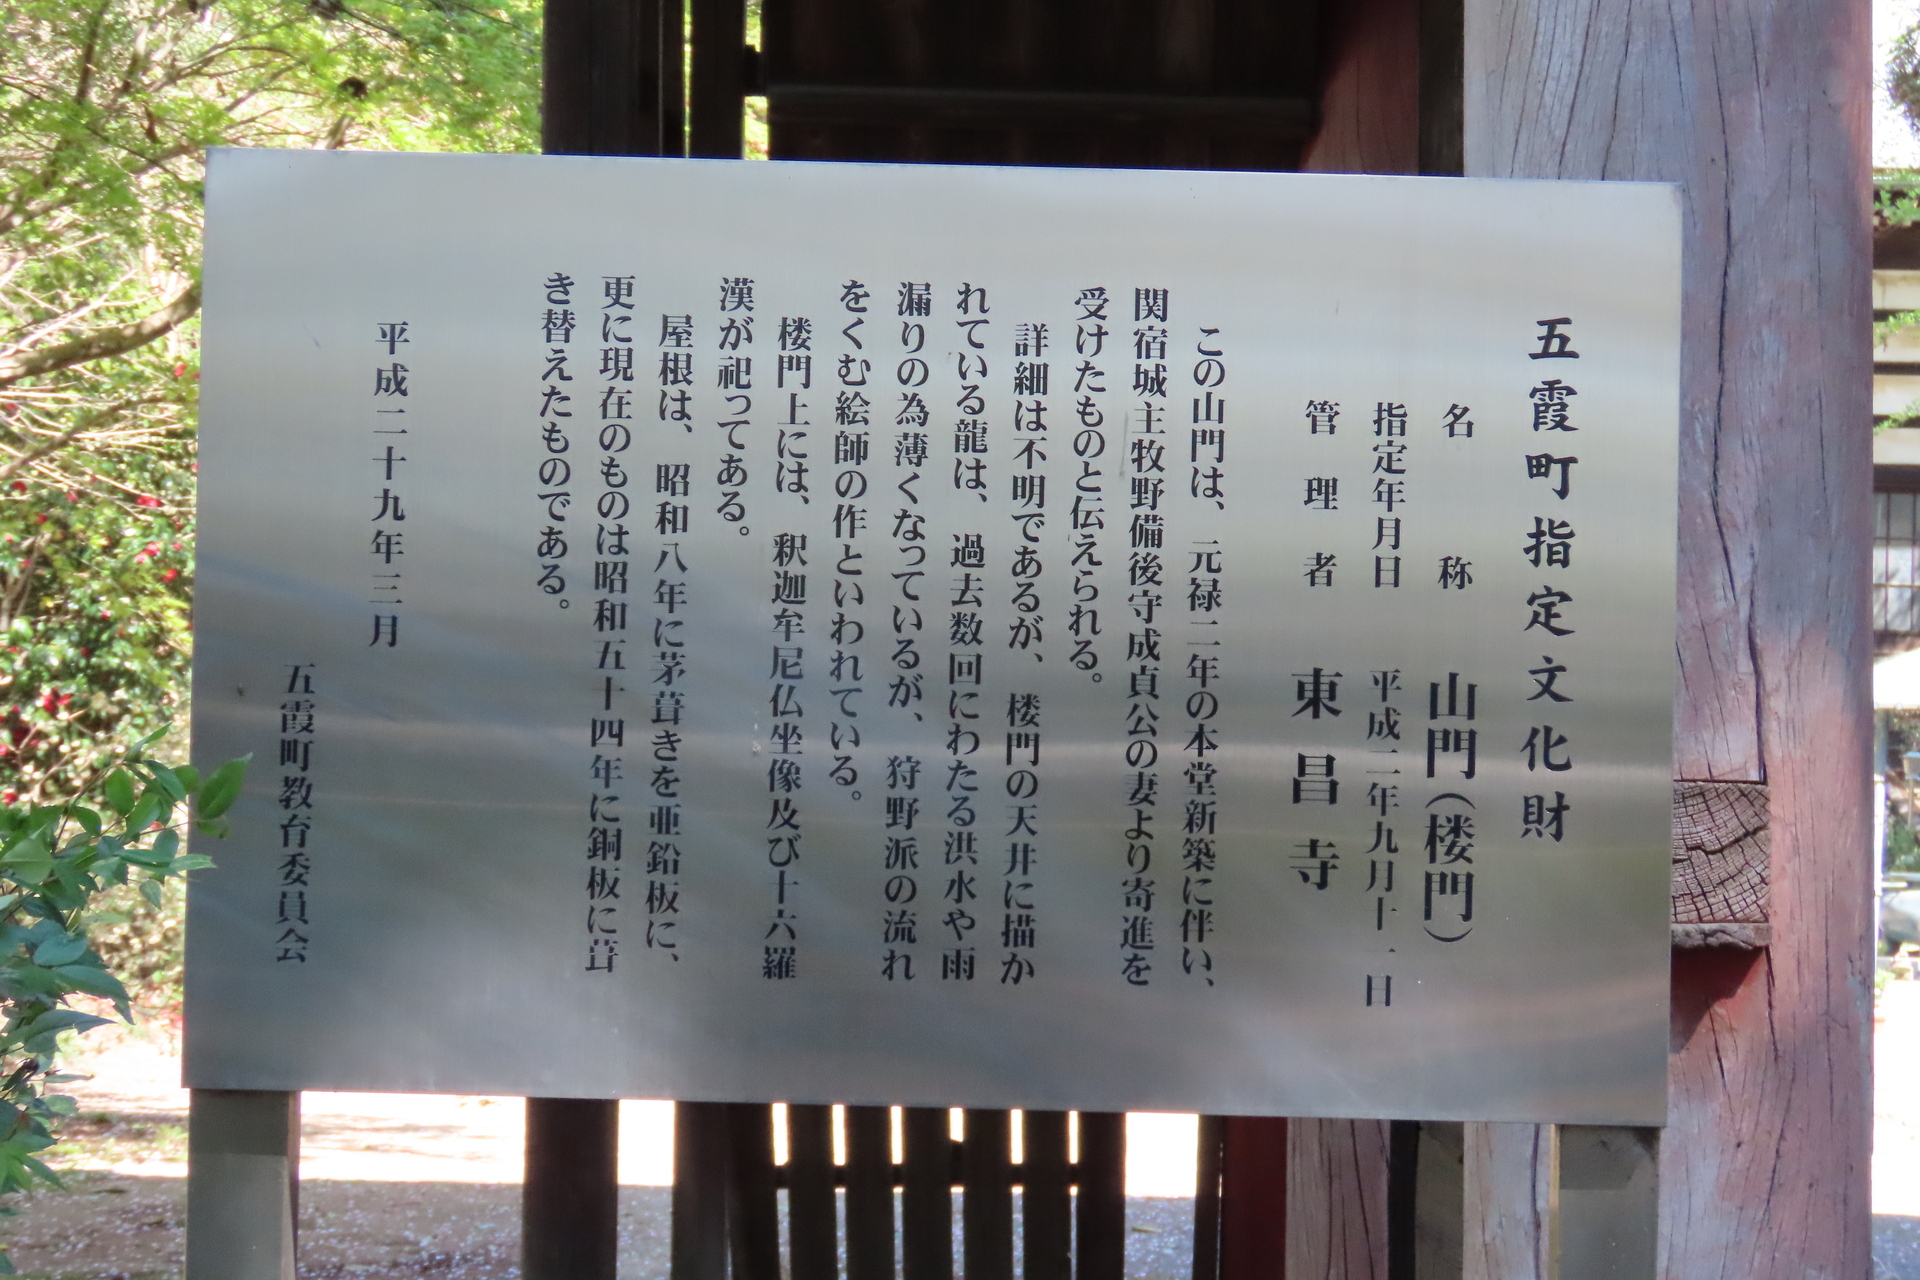 五霞町指定文化財
名称 山門（楼門）
指定年月日 平成二年九月十一日
管理者 東昌寺
この山門は、元禄二年の本堂新築に伴い、
関宿城主牧野備後守成貞公の妻より寄進を
受けたものと伝えられる。
詳細は不明であるが、楼門の天井に描か
れている龍は、過去数回にわたる洪水や雨
漏りの為薄くなっているが、狩野派の流れ
をくむ絵師の作といわれている。
楼門上には、釈迦牟尼仏坐像及び十六羅
漢が祀ってある。
屋根は、昭和八年に茅葺きを亜鉛板に、
更に現在のものは昭和五十四年に銅板に葺
き替えたものである。
平成二十九年三月
五霞町教育委員会